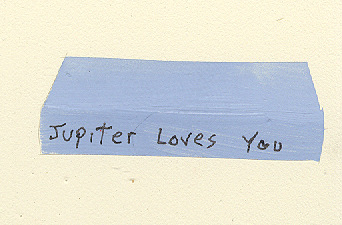 Jupiter Loves You